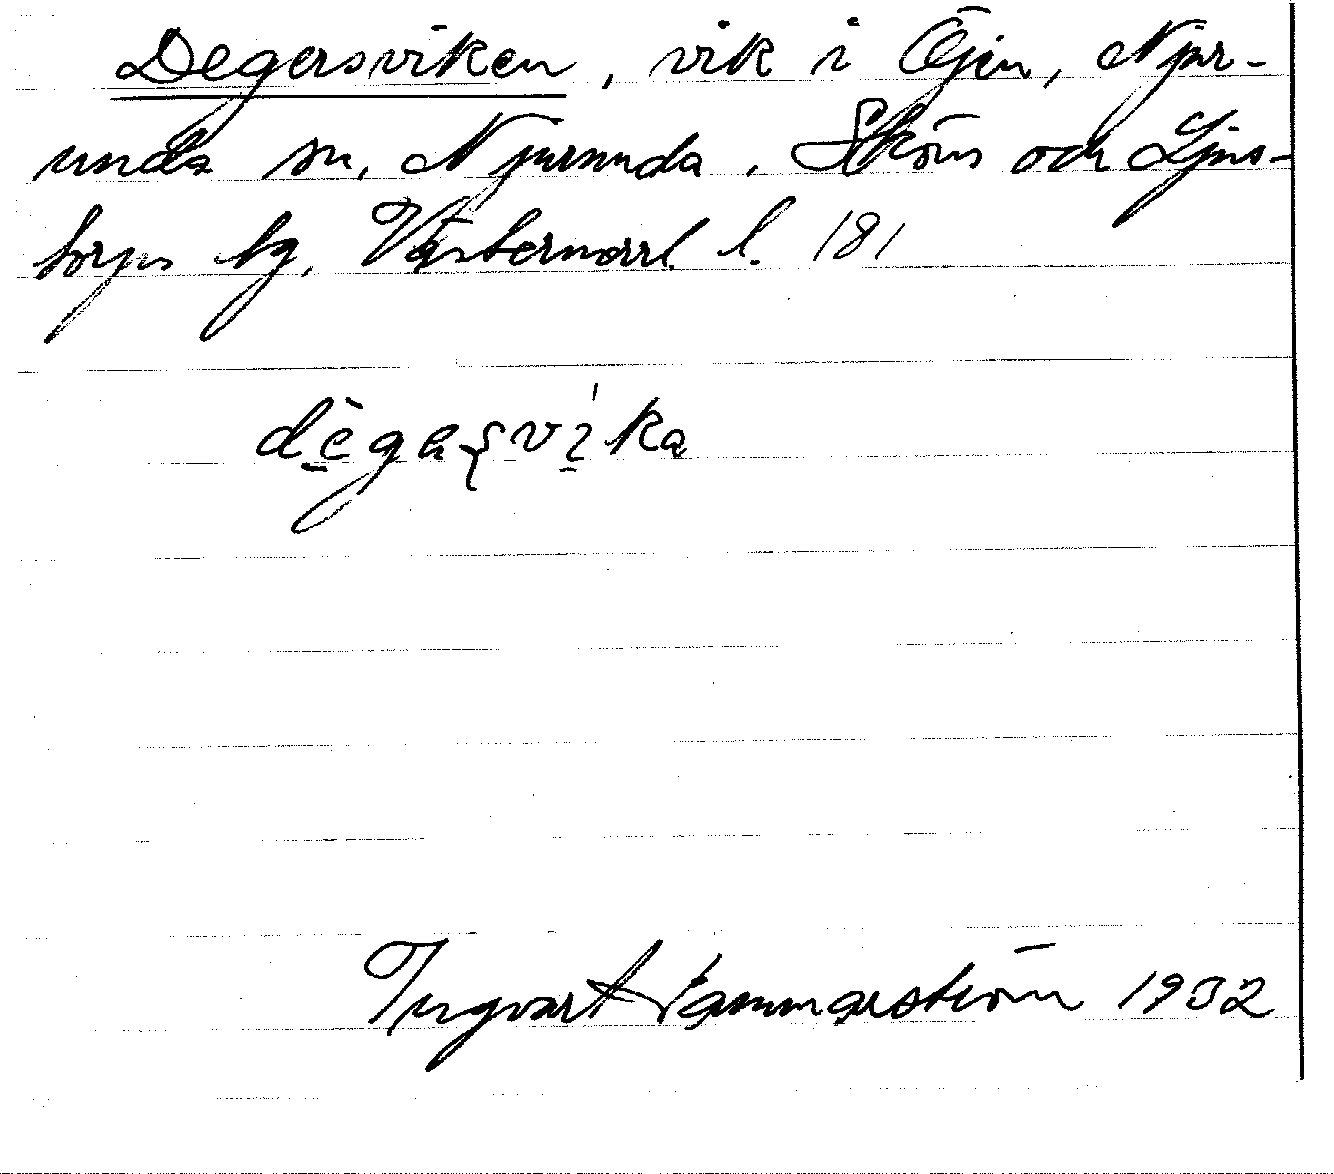 Degersviken, vik i Öjen, Njur-
unda sn, Njurunda, Sköns och Ljus-
torps tg, Västernorrl. l. 181
dègaʂvìka
Ingvart Hammarström 1932